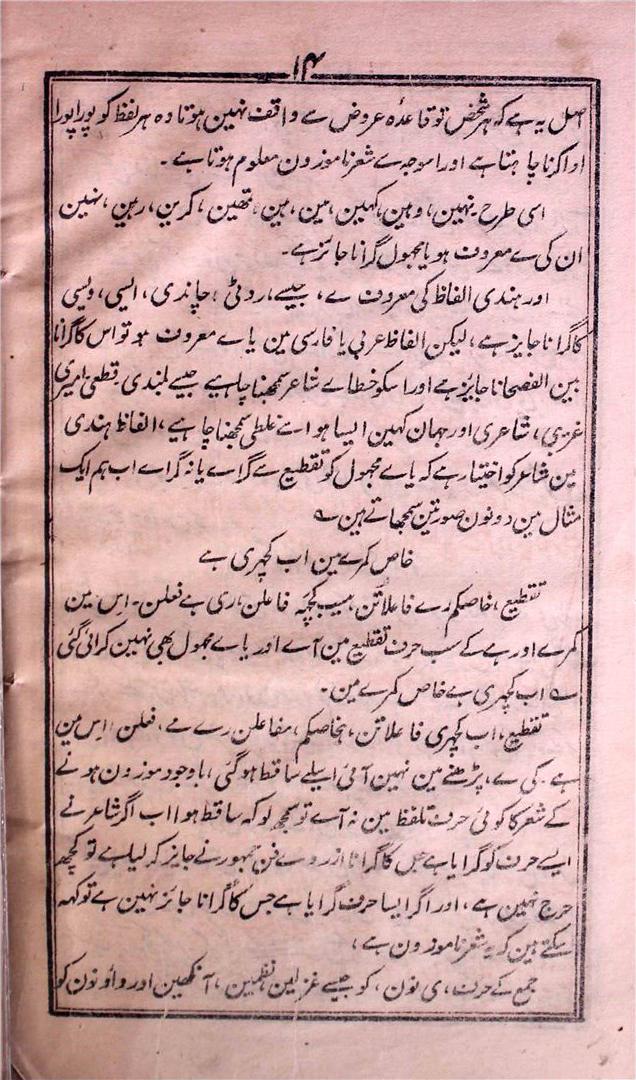 ۱۴
اصل یہ ہے کہ ہر شخص تو قاعدہ عروض سے واقف نہین ہوتا وہ ہر لفظ کو پورا پورا
ادا کرنا چاہتا ہے اور اسوجہ سے شعر ناموزون معلوم ہوتا ہے۔
اسی طرح۔ نہین، وہین، کہین، مین، ہین، تھین، کرین، رہین، نہین
ان کی ے معروف ہو یا مجہول گرانا جائز ہے۔
اور ہندی الفاظ کی معروف ے، جیسے، روٹی، چاندی، ایسی، ویسی
کا گرانا جایز ہے، لیکن الفاظ عربی یا فارسی مین یاے معروف ہو تو اس کا گرانا
بین الفصحا ناجایز ہے اور اسکو خطاے شاعر سمجھنا چاہیے جیسے بلندی۔ قطعی، امیری
غریبی، شاعری اور جہان کہین ایسا ہو اسے غلطی سمجھنا چاہیے، الفاظ ہندی
مین شاعر کو اختیار ہے کہ یاے مجہول کو تقطیع سے گراے یا نہ گراے اب ہم ایک
مثال مین دونون صورتین سمجھاتے ہین ؎
خاص کمرے مین اب کچہری ہے
تقطیع، خاصکمرے فاعلاتن، میبکچہ فاعلن، ری ہے فعلن۔ اس مین
کمرے اور ہے کے سب حرف تقطیع مین آے اور یاے مجہول بھی نہین گرائی گئی
؎ اب کچہری ہے خاص کمرے مین۔
تقطیع، اب کچہری فاعلاتن، ہخاصکم، مفاعلن رے مے، فعلن اس مین
ہے۔ کی ے، پڑھنے مین نہین آئی اسیلے ساقط ہو گئی، باوجود موزون ہونے
کے شعر کا کوئی حرف تلفظ مین نہ آے تو سمجھ لو کہ ساقط ہوا اب اگر شاعر نے
ایسے حرف کو گرایا ہے جس کا گرانا ازروے فن جمہور نے جایز کر لیا ہے تو کچھ
حرج نہین ہے، اور اگر ایسا حرف گرایا ہے جس کا گرانا جائز نہین ہے تو کہہ
سکتے ہین کہ یہ شعر ناموزون ہے،
جمع کے حرف، ی نون، کو جیسے غزلین نظمین، آنکھین اور واؤ نون کو